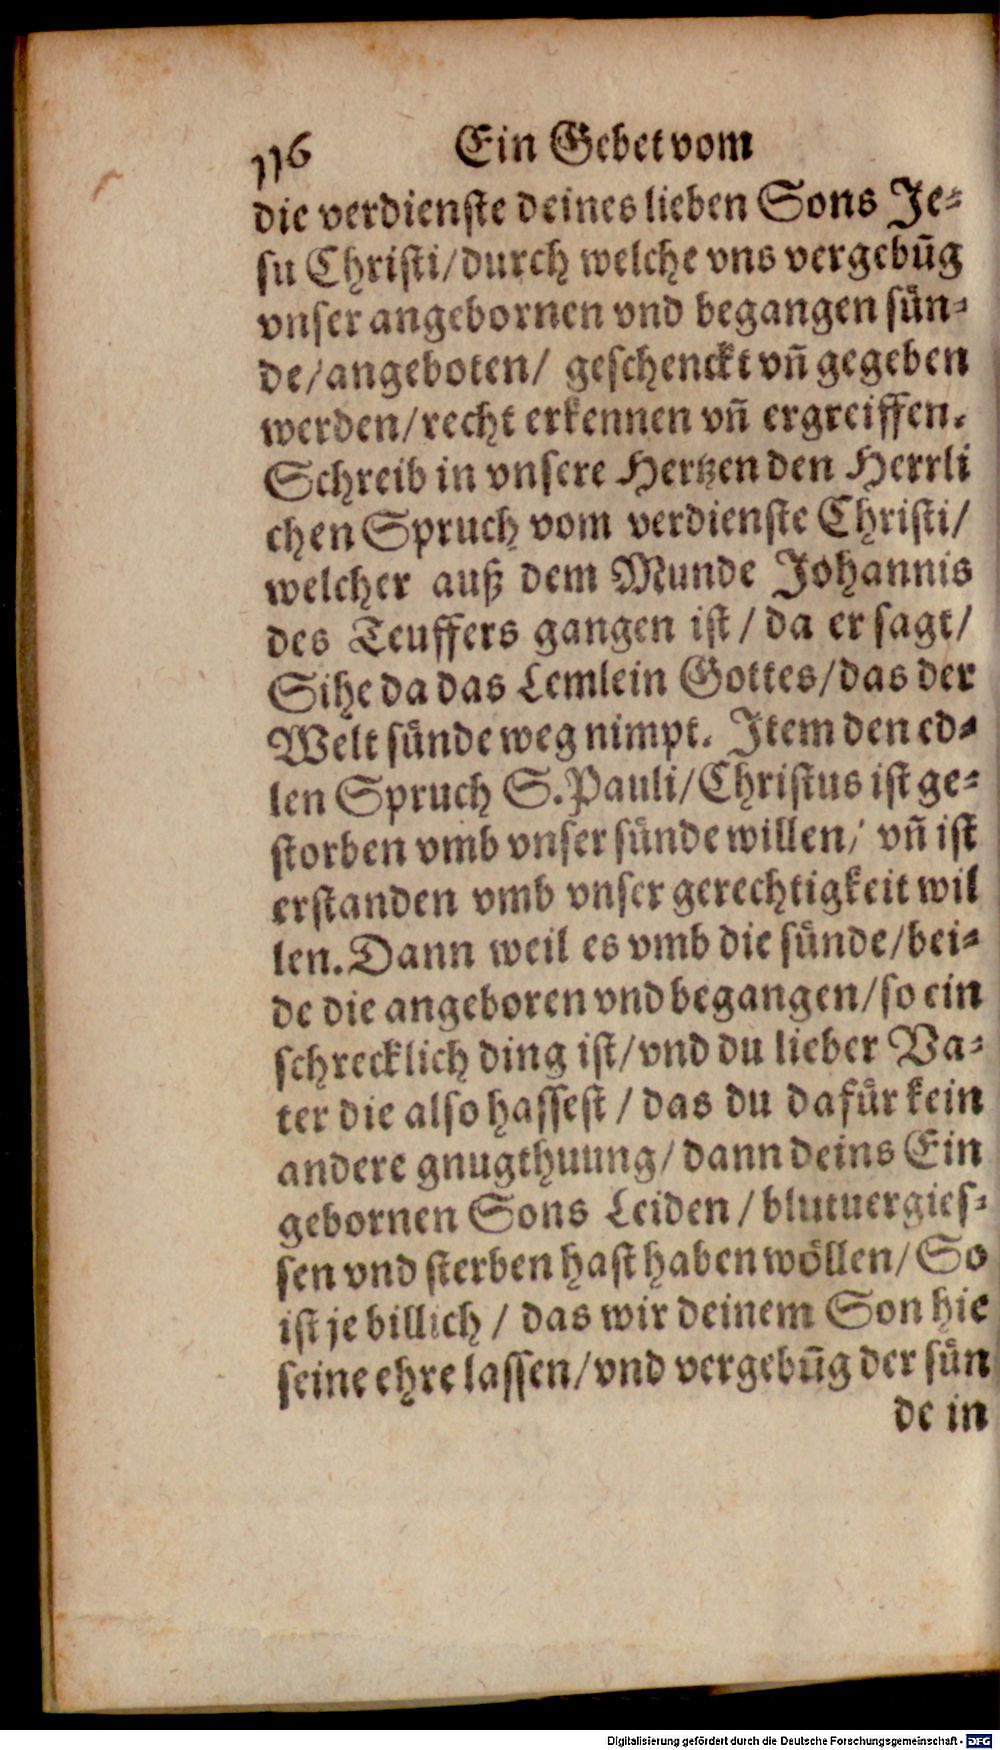 116 Ein Gebet vom
die verdienste deines lieben Sons Je-
su Christi/durch welche vns vergebūg
vnser angebornen vnd begangen sün-
de/angeboten/ geschenckt vñ gegeben
werden/recht erkennen vñ ergreiffen.
Schreib in vnsere Hertzen den Herrli
chen Spruch vom verdienste Christi/
welcher auß dem Munde Johannis
des Teuffers gangen ist/da er sagt/
Sihe da das Lemlein Gottes/das der
Welt sünde weg nimpt. Item den ed-
len Spruch S. Pauli/Christus ist ge-
storben vmb vnser sünde willen/ vñ ist
erstanden vmb vnser gerechtigkeit wil
len. Dann weil es vmb die sünde/bei-
de die angeboren vnd begangen/so ein
schrecklich ding ist/vnd du lieber Va-
ter die also hassest/das du dafür kein
andere gnugthuung/dann deins Ein
gebornen Sons Leiden/blutuergies-
sen vnd sterben hast haben wöllen/So
ist je billich/das wir deinem Son hie
seine ehre lassen/vnd vergebūg der sün
de in
Digitalisierung gefördert durch die Deutsche Forschungsgemeinschaft - DFG